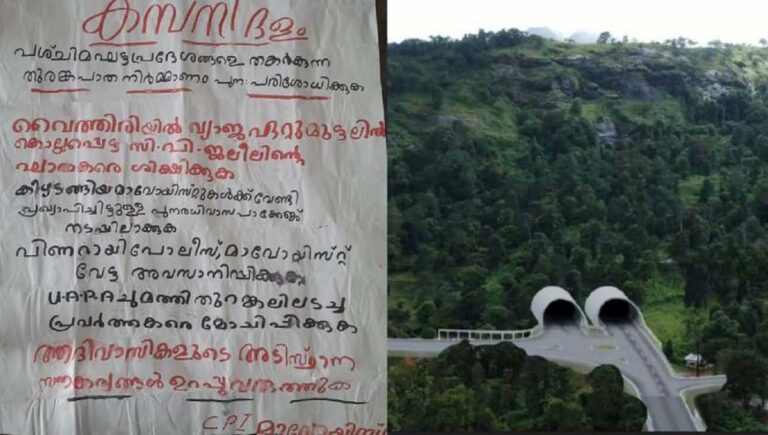 കബനീ ദളം
പശ്ചിമഘട്ടപ്രദേശങ്ങളെ തകർക്കുന്ന
തുരങ്കപാത നിർമ്മാണം പുനഃ പരിശോധിക്കുക
വൈത്തിരിയിൽ വ്യാജഏറ്റുമുട്ടലിൽ
കൊല്ലപ്പെട്ട സി.പി.ജലീലിന്റെ
ഘാതകരെ ശിക്ഷിക്കുക
കീഴടങ്ങിയ മാവോയിസ്റ്റുകൾക്ക് വേണ്ടി
പ്രഖ്യാപിച്ചിട്ടുള്ള പുനരധിവാസ പാക്കേജ്
നടപ്പിലാക്കുക
പിണറായി പോലീസ്, മാവോയിസ്റ്റ്
വേട്ട അവസാനിപ്പിക്കുക
U.A.P.A ചുമത്തി തുറങ്കലിലടച്ച
പ്രവർത്തകരെ മോചിപ്പിക്കുക
ആദിവാസികളുടെ അടിസ്ഥാന
ഉറപ്പുവരുത്തുക
CPI മാവോയിസ്റ്റ്